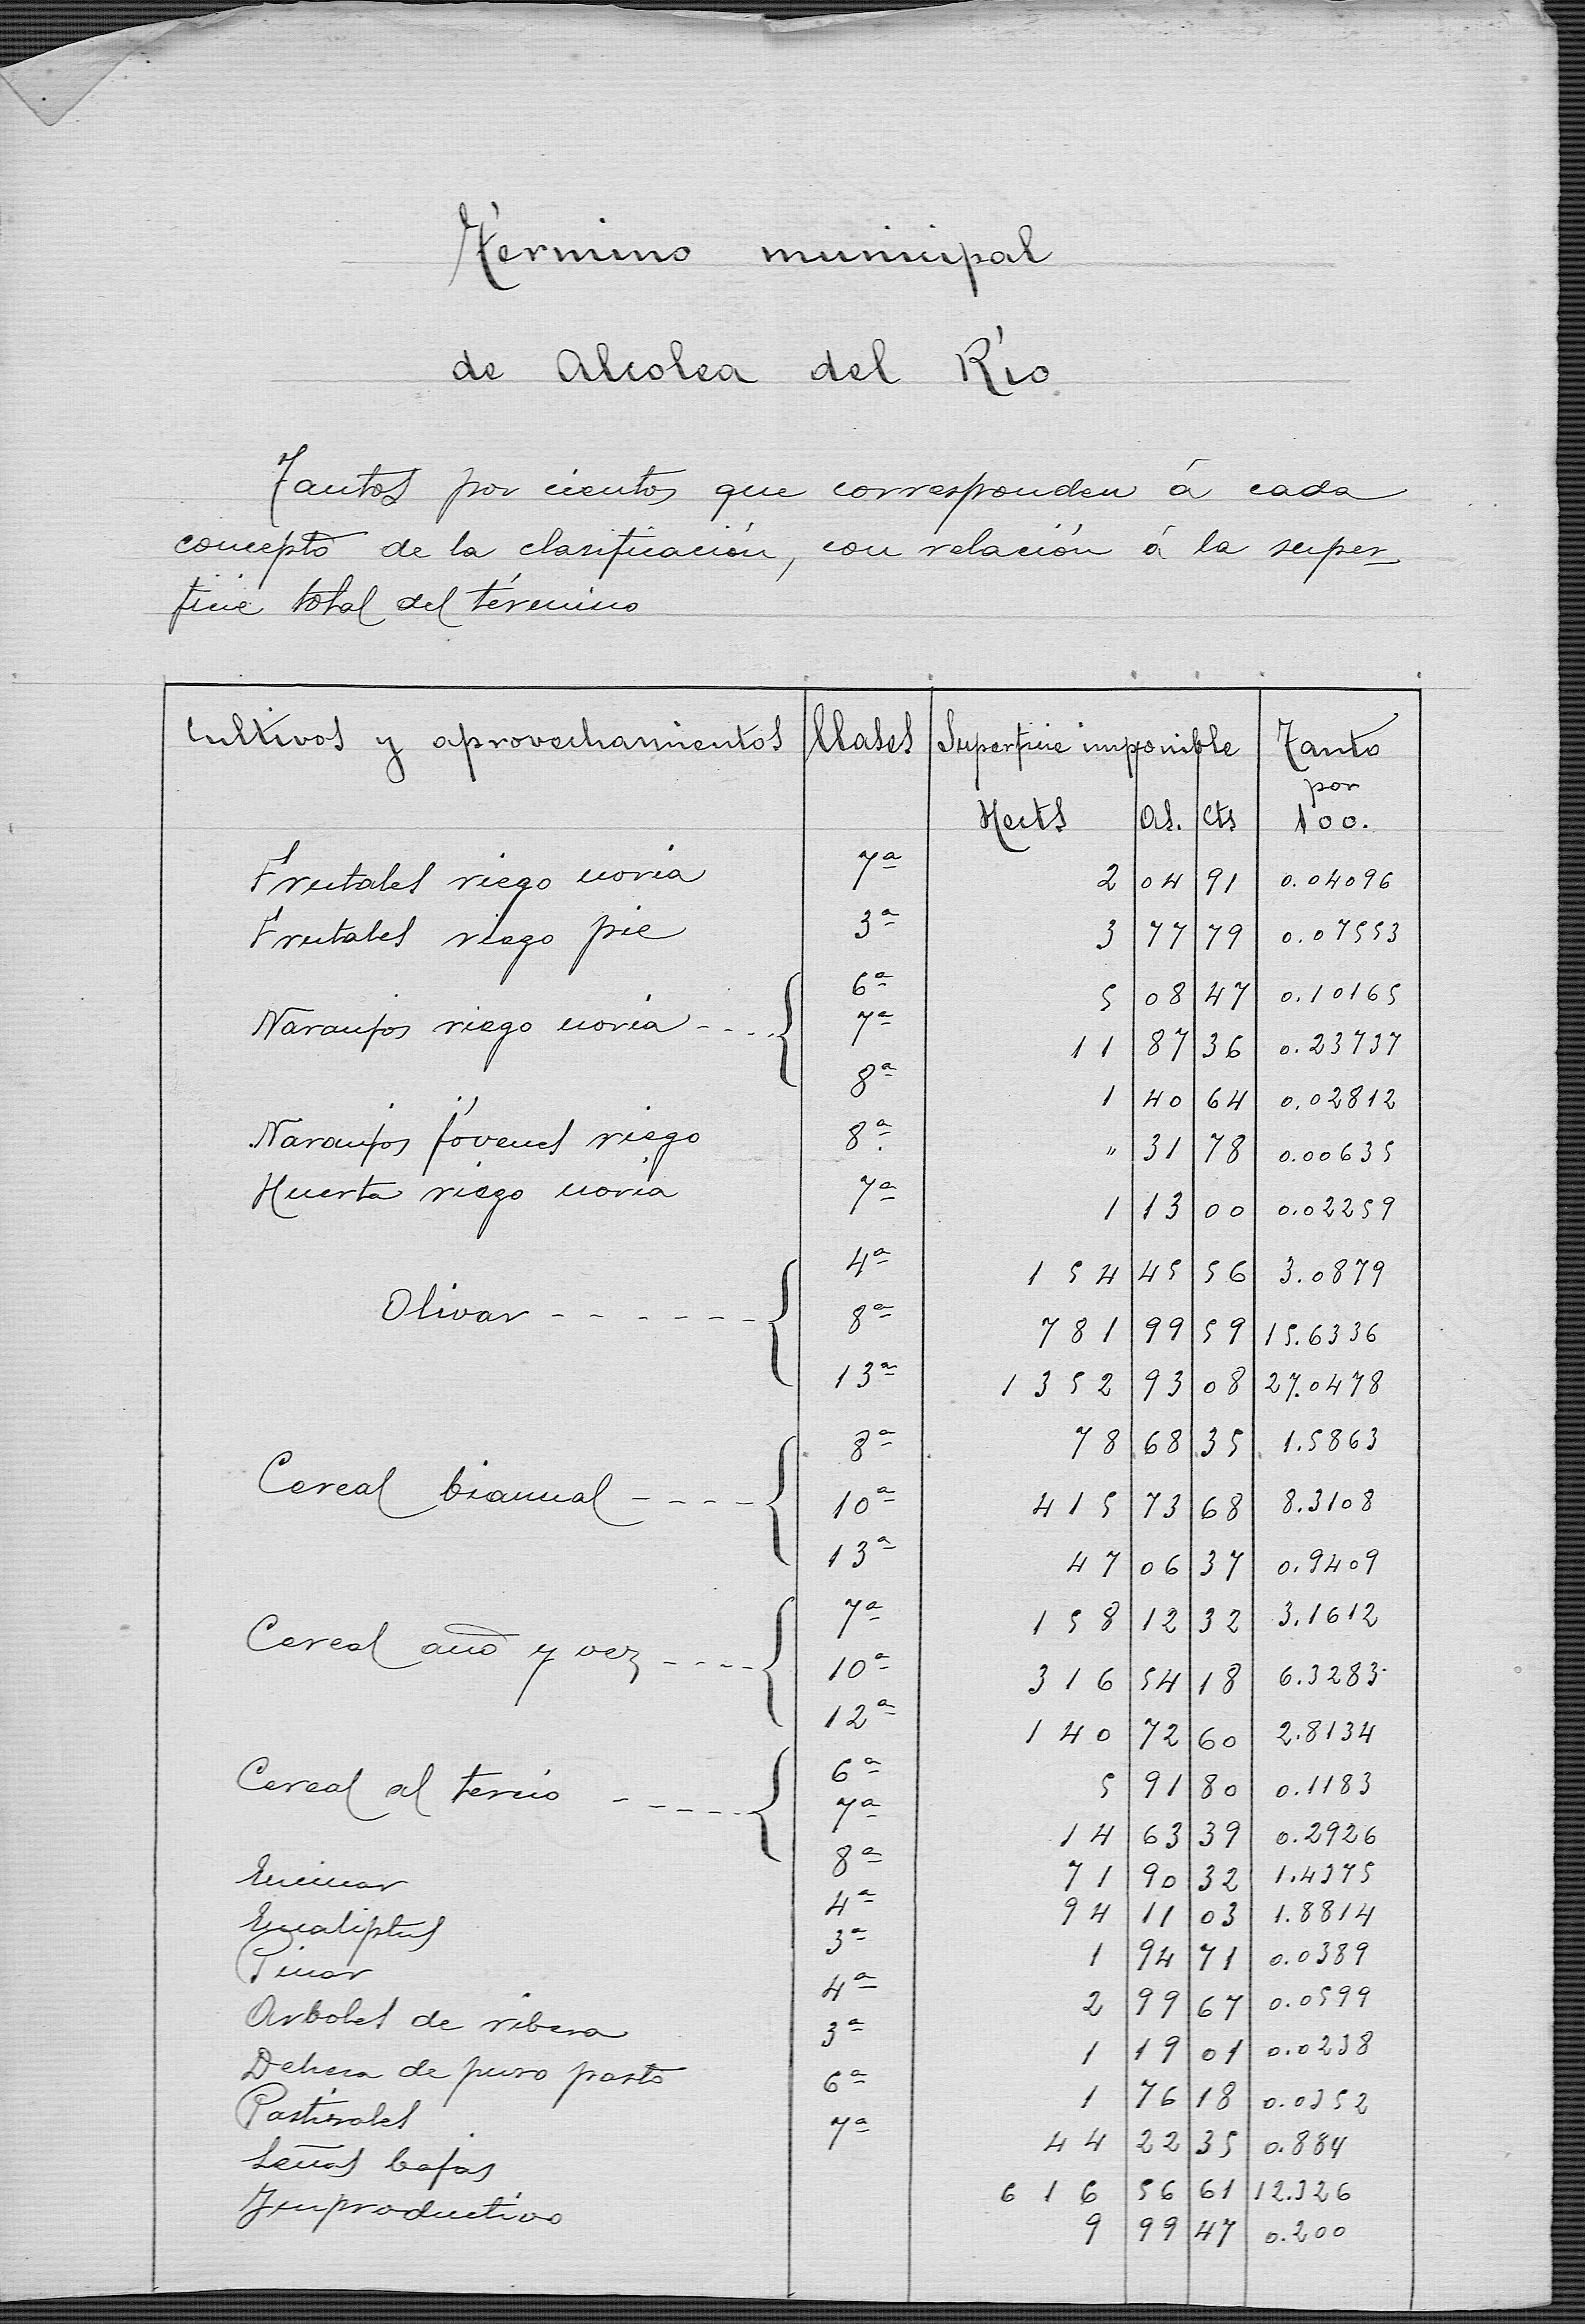 Término municipal
de Alcolea del Río
Tantos por cientos que corresponden á cada
concepto de la clasificación, con relación á la super-
ficie total del término
Cultivos y aprovechamientos Clases Superficie imponible Tanto
por
Hects As. Cts 100.
Frutales riego noria 7ª 2 04 91 0.04096
Frutales riego pie 3ª 3 77 79 0.07553
6ª 5 08 47 0.10165
Naranjos riego noria ---- 7ª 11 87 36 0.23737
8ª 1 40 64 0.02812
Naranjos jóvenes riego 8ª " 31 78 0.00635
Huerta riego noria 7ª 1 13 00 0.02259
4ª 154 45 56 3.0879
Olivar ------ 8ª 781 99 59 15.6336
13ª 1352 93 08 27.0478
8ª 78 68 35 1.5863
Cereal bianual ---- 10ª 415 73 68 8.3108
13ª 47 06 37 0.9409
7ª 158 12 32 3.1612
Cereal año y vez ---- 10ª 316 54 18 6.3283
12ª 140 72 60 2.8134
6ª 5 91 80 0.1183
Cereal al tercio ----- 7ª 14 63 39 0.2926
8ª 71 90 32 1.4375
Encinar 4ª 94 11 03 1.8814
Eucaliptus 3ª 1 94 71 0.0389
Pinar 4ª 2 99 67 0.0599
Arboles de ribera 3ª 1 19 01 0.0238
Dehesa de puro pasto 6ª 1 76 18 0.0352
Pastizales 7ª 44 22 35 0.884
Leñas bajas 616 56 61 12.326
Improductivo 9 99 47 0.200